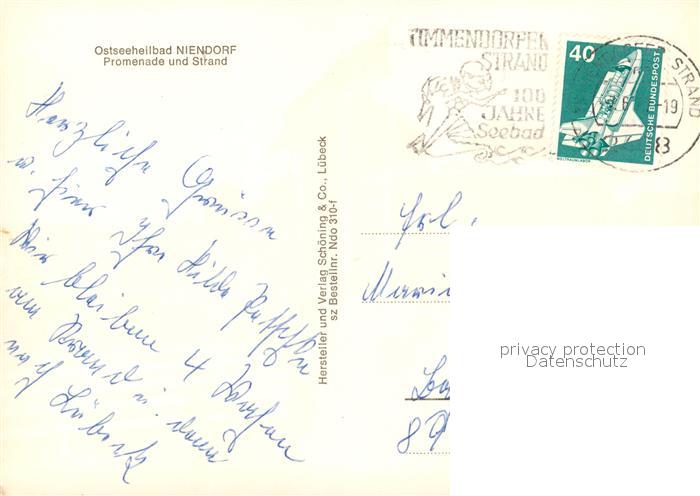 Ostseeheilbad NIENDORF
Promenade und Strand
TIMMENDORFER
STRAND
100
JAHRE
Seebad
40
DEUTSCHE BUNDESPOST
WELTRAUMLABOR
STRAND
-19
8
Herzliche Grüsse
v. hier Ihre Hilde
Wir bleiben 4 Wochen
am Strand u. dann
nach Lübeck
Hersteller und Verlag Schöning & Co., Lübeck
sz Bestellnr. Ndo 310-f
Frl.
89
privacy protection
Datenschutz